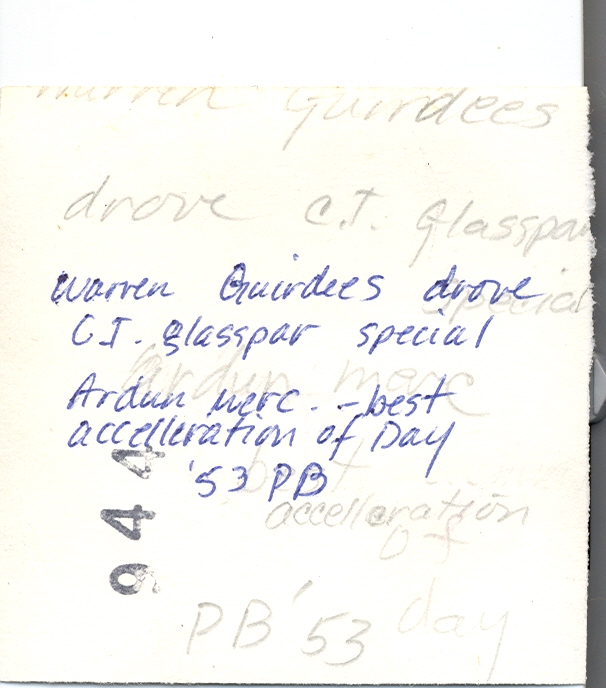 Warren Guirdees
drove C.T. glasspar
special
Warren Guirdees drove
C.T. glasspar special
Ardun merc
Ardun merc. - best
accelleration of Day
'53 PB
best
accelleration
of
day
PB '53
944